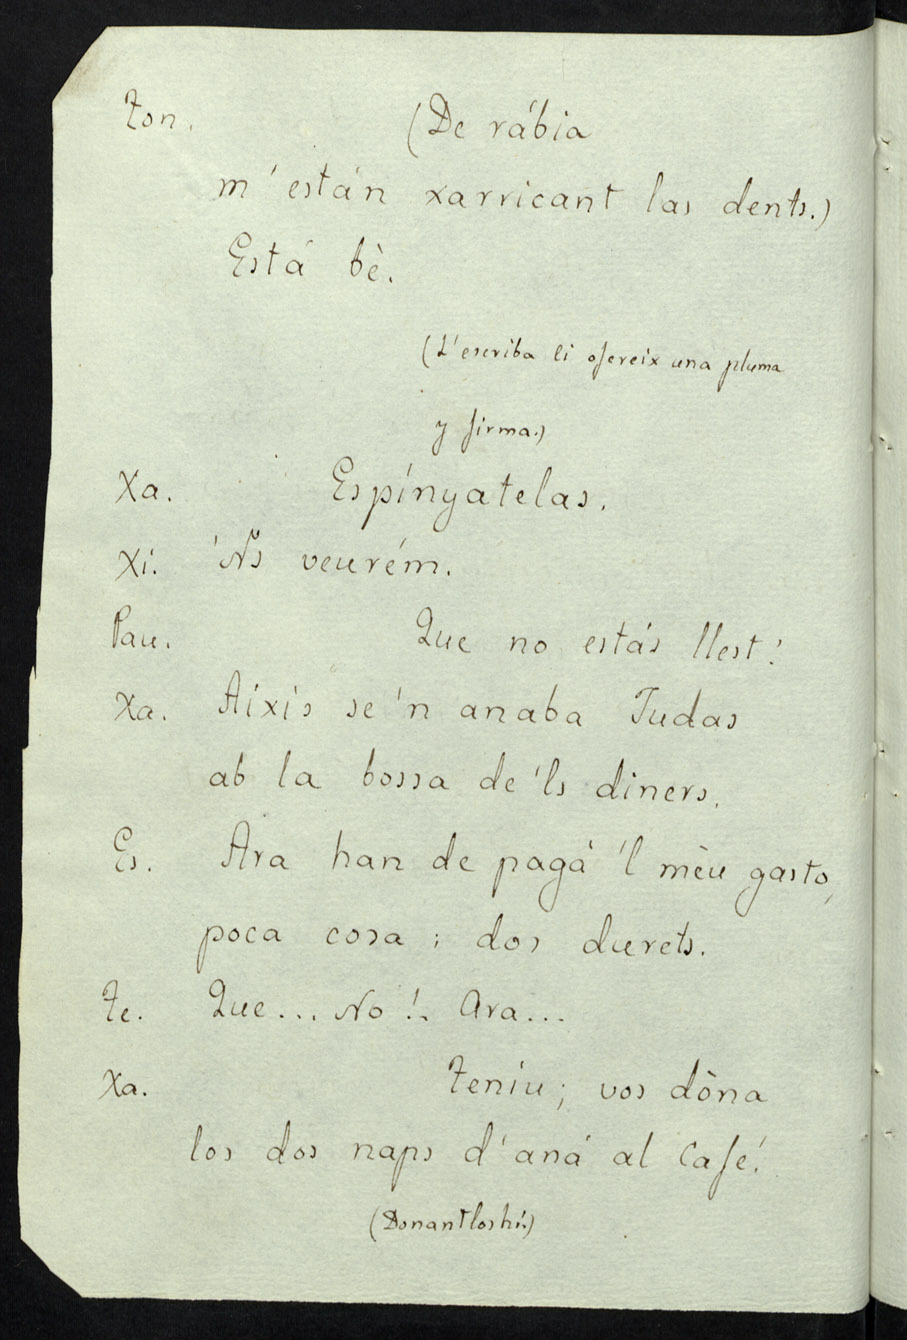 Ton. (De rábia
m' están xarricant las dents.)
Está bè.
(L'escriba li ofereix una pluma
y firma.)
Xa. Espínyatelas.
Xi. 'Ns veurém.
Pau. Que no estás llest!
Xa. Aixís se'n anaba Judas
ab la bossa de 'ls diners.
Es. Ara han de pagá 'l mèu gasto,
poca cosa; dos durets.
Te. Que... No!.. Ara...
Xa. Teniu; vos dòna
los dos naps d'aná al Café!
(Donantloshi.)